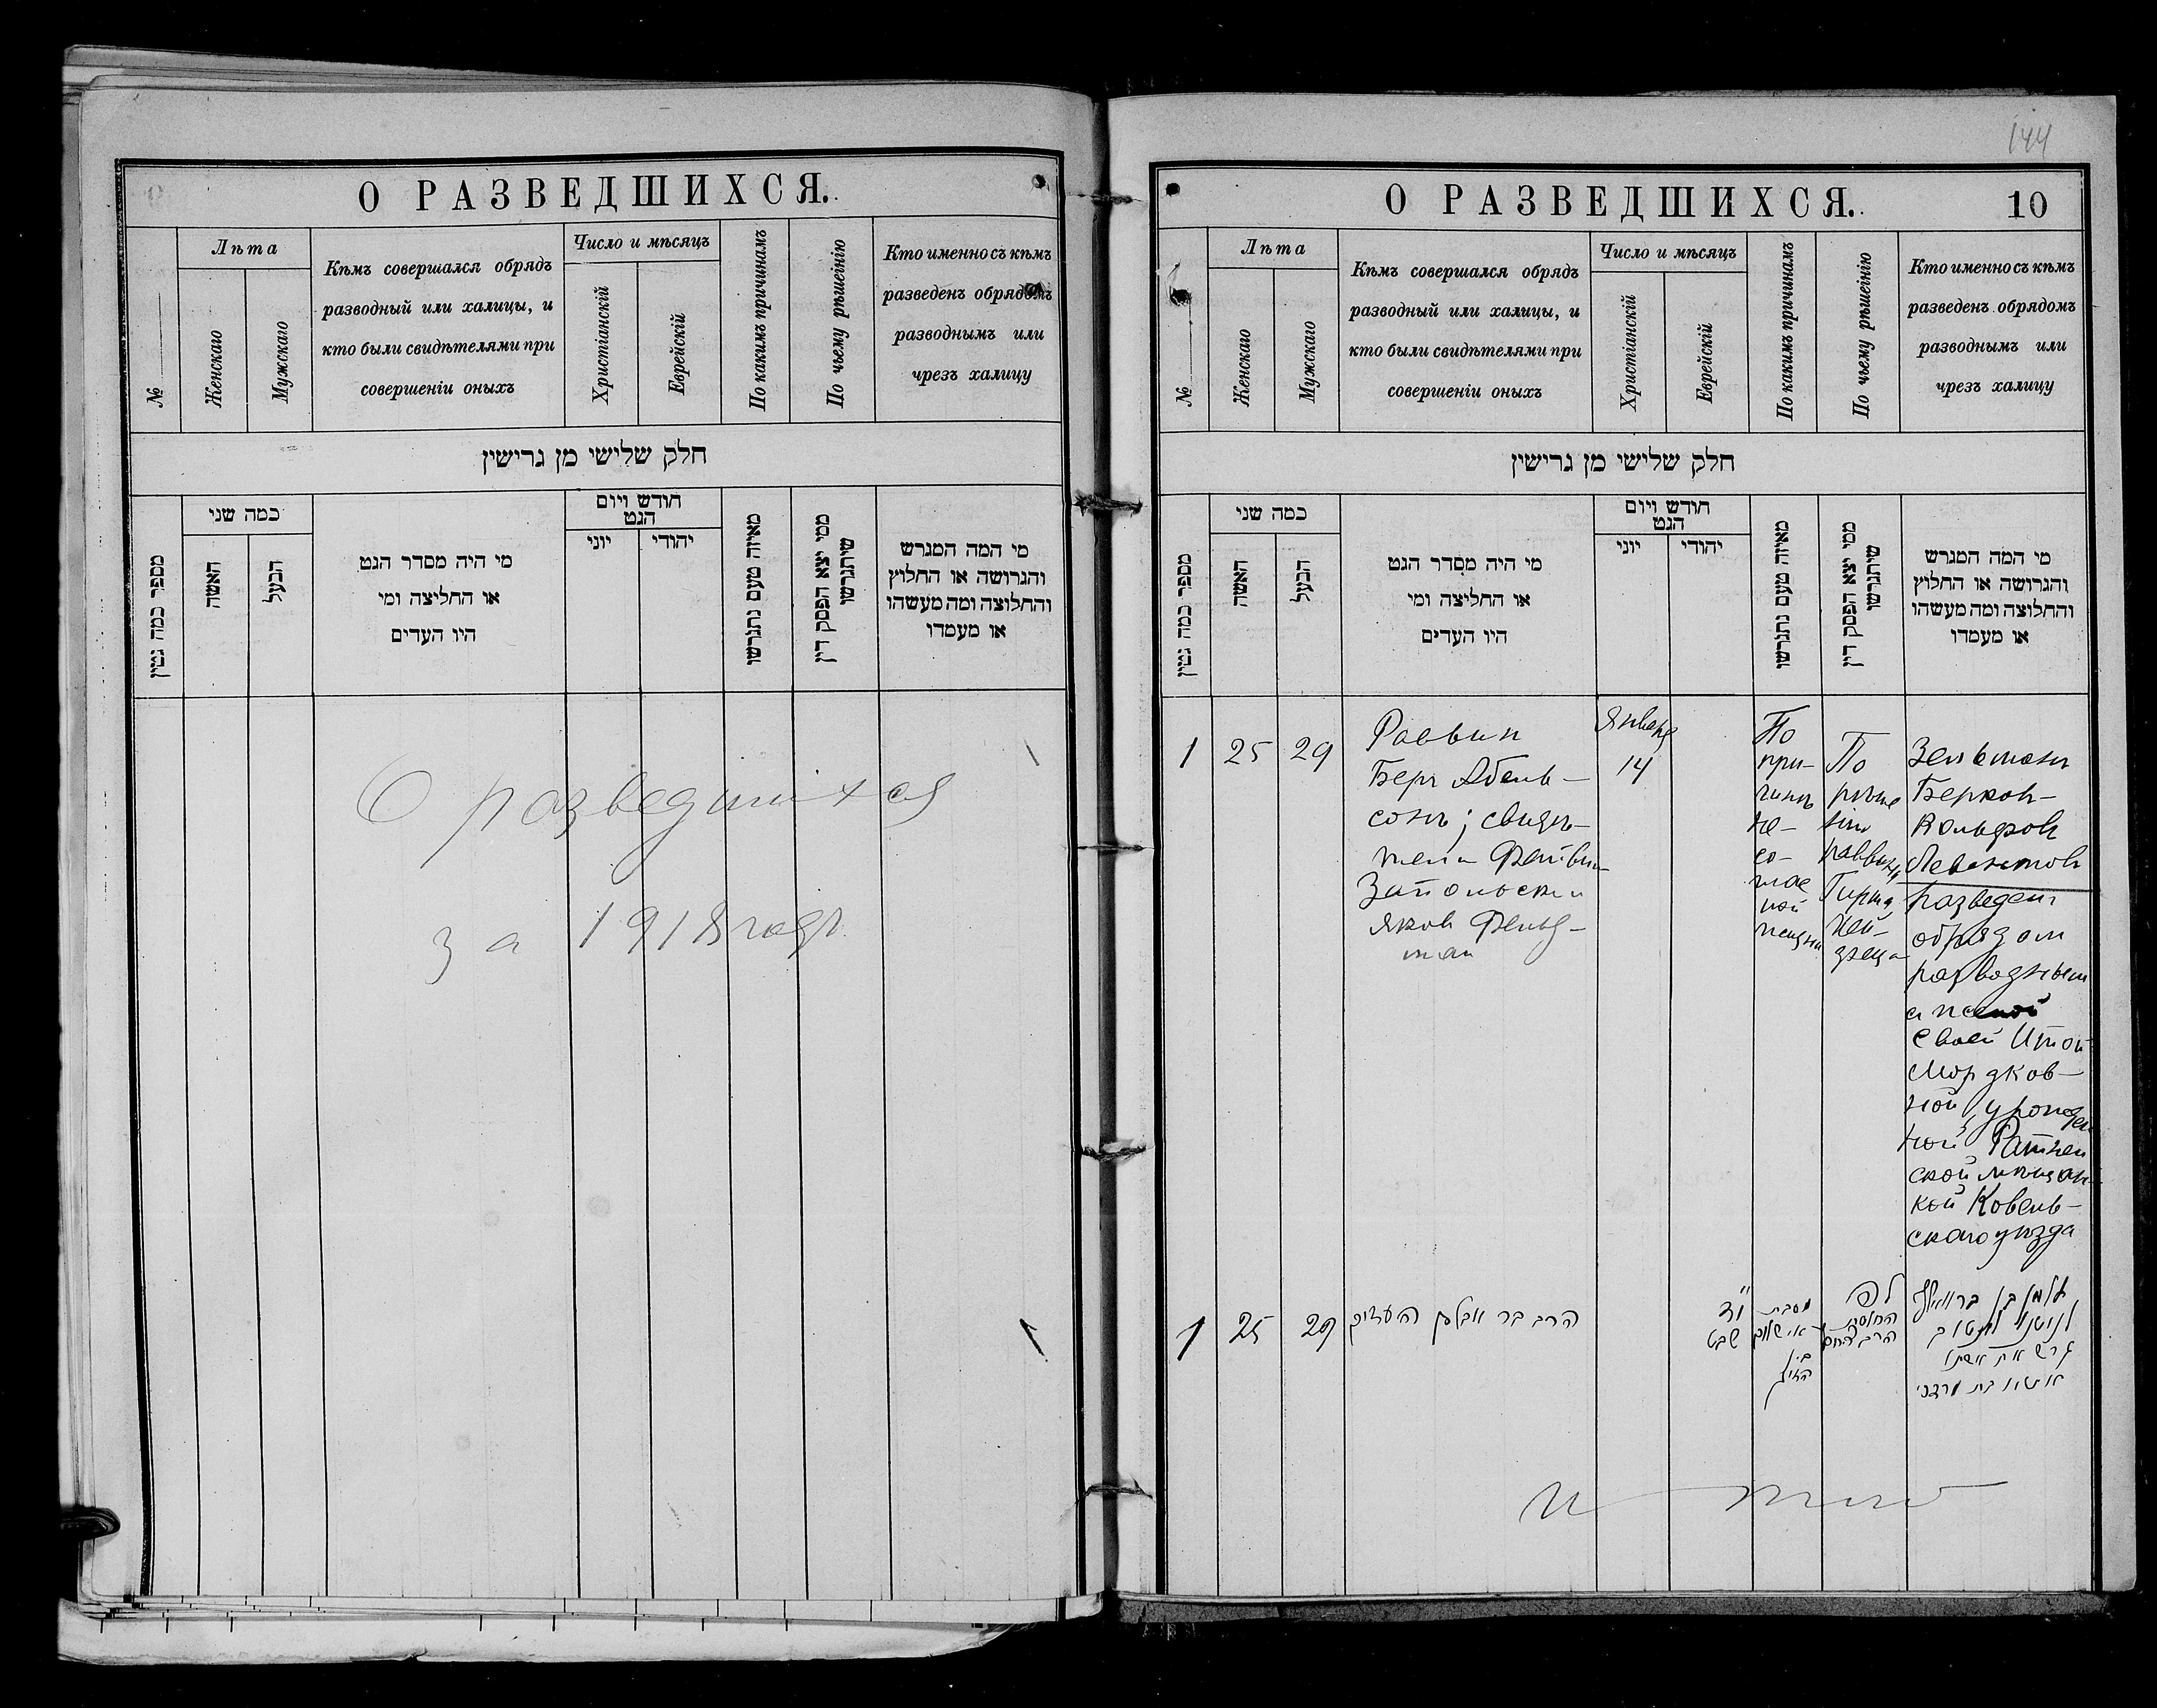 О РАЗВЕДШИХСЯ.
№
Лѣта
Женскаго
Мужскаго
Кѣмъ совершался обрядъ
разводный или халицы, и
кто были свидѣтелями при
совершеніи оныхъ
Число и мѣсяцъ
Христіанскій
Еврейскій
По какимъ причинамъ
По чьему рѣшеінію
Кто именно съ кѣмъ
разведенъ обрядомъ
разводнымъ или
чрезъ халицу
חלק שלישי מן גרישין
מספר כמה גטין
כמה שני
האשה
הבעל
מי היה מסדר הגט
או החליצה ומי
היו העדים
חודש ויום
הגט
יוני
יהודי
מאיזה טעם נתגרשו
ממי יצא הפסק דין
שיתגרשו
מי המה המגרש
והגרושה או החלוץ
והחלוצה ומה מעשהו
או מעמדו
О разведшихся
за 1918 годъ
144
О РАЗВЕДШИХСЯ.
10
№
Лѣта
Женскаго
Мужскаго
Кѣмъ совершался обрядъ
разводный или халицы, и
кто были свидѣтелями при
совершеніи оныхъ
Число и мѣсяцъ
Христіанскій
Еврейскій
По какимъ причинамъ
По чьему рѣшеінію
Кто именно съ кѣмъ
разведенъ обрядомъ
разводнымъ или
чрезъ халицу
חלק שלישי מן גרישין
מספר כמה גטין
כמה שני
האשה
הבעל
מי היה מסדר הגט
או החליצה ומי
היו העדים
חודש ויום
הגט
יוני
יהודי
מאיזה טעם נתגרשו
ממי יצא הפסק דין
שיתגרשו
מי המה המגרש
והגרושה או החלוץ
והחלוצה ומה מעשהו
או מעמדו
1
25
29
Раввин
Беръ Абель-
сонъ; свидѣ-
тели
Запольскии
Яков Фельд-
ман
Января
14
По
при-
чинѣ
не-
со-
глас
ной
жизни
По
рѣше
нію
раввина
Зельманъ
Берков-
Вольфовъ
Левентовъ
разведенъ
обрядом
разводным
с женой
своей Итой
Мордков-
ной, урожден
ной
ской мѣщан-
кой Ковень-
скаго уѣзда
1
25
29
הרב בר אבלסן
י"ד
שבט
מסבת
אי שלום
בין
הזוג
לפי
הרב
זלמן בן
גרש את אשתו
איטא בת מרדכי